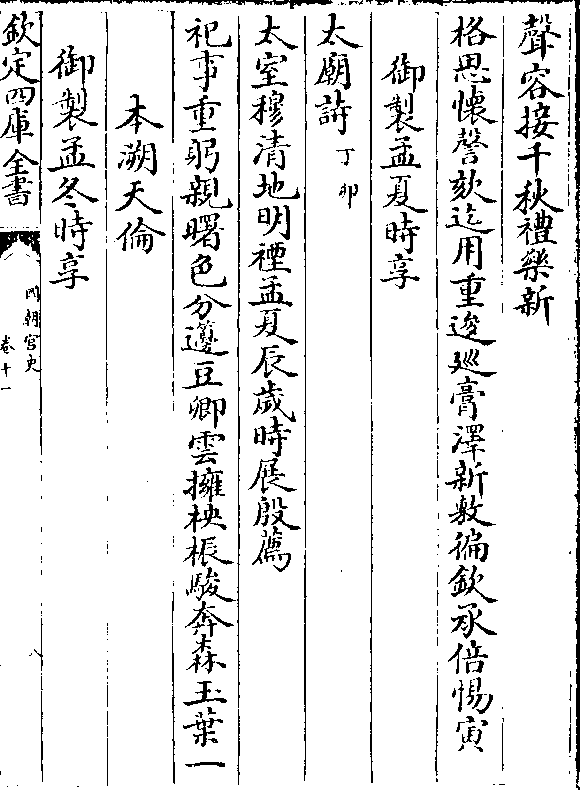 聲容接千秋禮樂新
格思懷謦欬迄用重逡廵膏澤新敷徧欽承倍惕寅
御製孟夏時享
太廟詩丁卯
太室穆清地明禋孟夏辰歲時展殷薦
祀事重躬親曙色分籩豆卿雲擁柍桭駿奔森玉葉一
本溯天倫
御製孟冬時享
欽定四庫全書
國朝宮史
卷十一
八